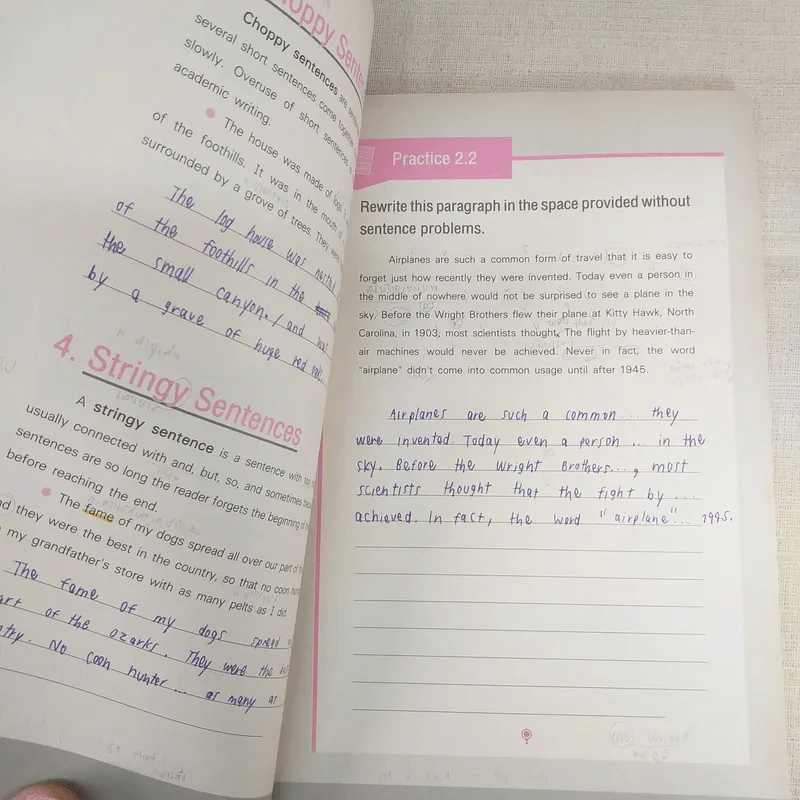 Choppy Sente
Choppy sentences are
several short sentences come together
slowly. Overuse of short sentences
academic writing.
The house was made of logs.
of the foothills. It was in the mouth of
surrounded by a grove of trees. They were
The log house was
of the foothills in the
the small canyon. / and
by a grave of huge red
4. Stringy Sentences
A stringy sentence is a sentence with too
usually connected with and, but, so, and sometimes
sentences are so long the reader forgets the beginning of the
before reaching the end.
The fame of my dogs spread all over our part of the
they were the best in the country, so that no coon
my grandfather's store with as many pelts as I did
The fame of my dogs spread
of the ozarks. They were the
No coon hunter ... as many as
Practice 2.2
Rewrite this paragraph in the space provided without
sentence problems.
Airplanes are such a common form of travel that it is easy to
forget just how recently they were invented. Today even a person in
the middle of nowhere would not be surprised to see a plane in the
sky. Before the Wright Brothers flew their plane at Kitty Hawk, North
Carolina, in 1903, most scientists thought. The flight by heavier-than-
air machines would never be achieved. Never in fact, the word
"airplane" didn't come into common usage until after 1945.
Airplanes are such a common ... they
were invented. Today even a person ... in the
sky. Before the Wright Brothers..., most
scientists thought that the fight by ...
achieved. In fact, the word "airplane"... 1945.